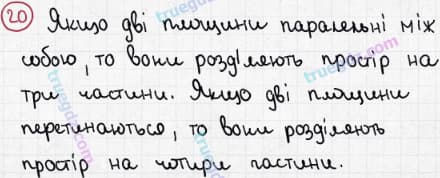 20 Якщо дві площини паралельні між
собою, то вони розділяють простір на
три частини. Якщо дві площини
перетинаються, то вони розділяють
простір на чотири частини.
truegdz.com
truegdz.com
truegdz.com
truegdz.com